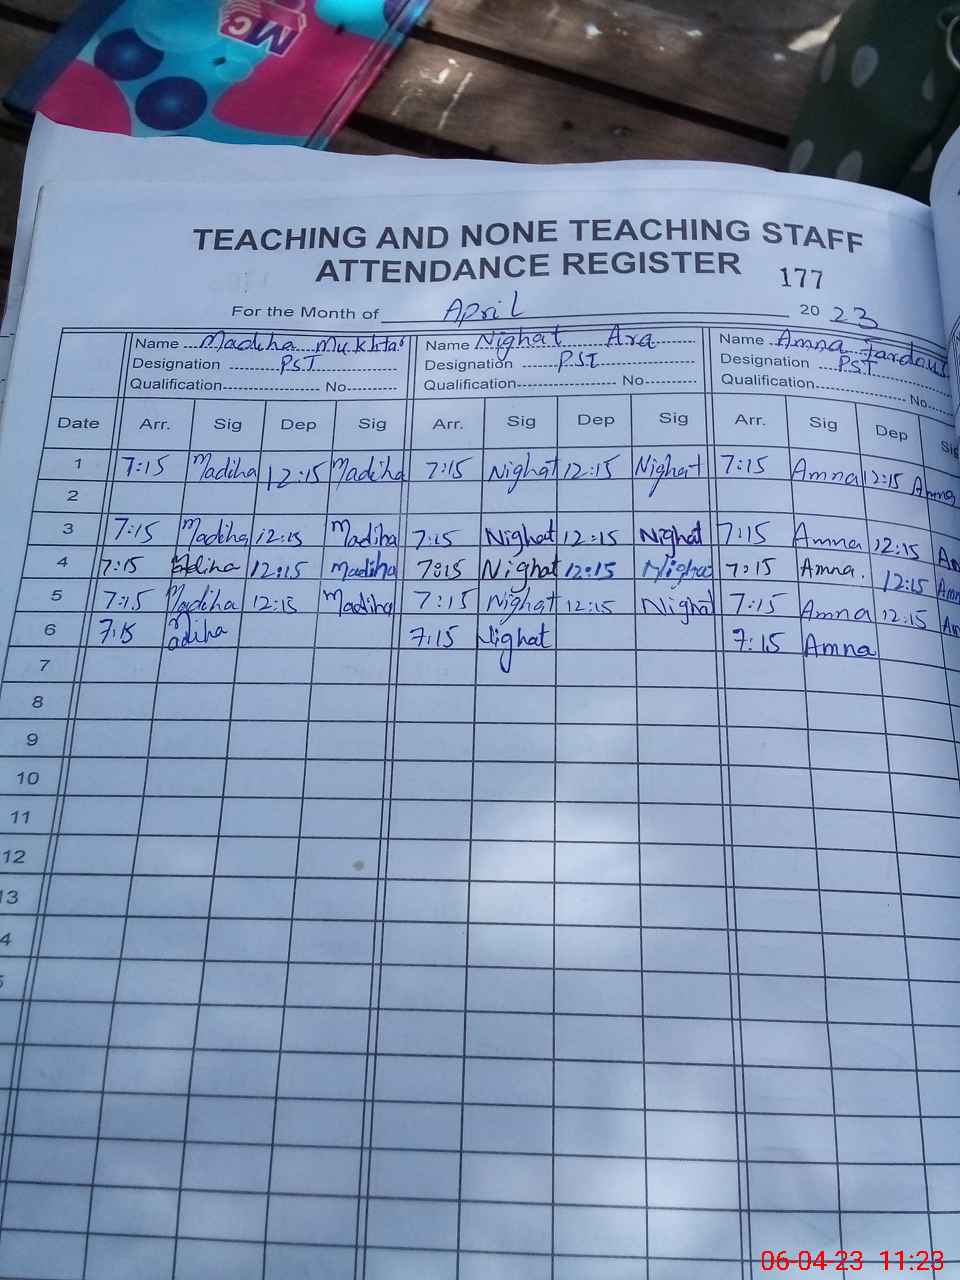 Mc
TEACHING AND NONE TEACHING STAFF
ATTENDANCE REGISTER 177
For the Month of April 2023
Name Madiha Mukhtar Name Nighat Ara Name Amna Fardous
Designation PST Designation PST Designation PST
Qualification No Qualification No Qualification No
Date Arr. Sig Dep Sig Arr. Sig Dep Sig Arr. Sig Dep Sig
1 7:15 Madiha 12:15 Madiha 7:15 Nighat 12:15 Nighat 7:15 Amna 12:15 Amna
2
3 7:15 Madiha 12:15 Madiha 7:15 Nighat 12:15 Nighat 7:15 Amna 12:15 Am
4 7:15 Madiha 12:15 Madiha 7:15 Nighat 12:15 Nighat 7:15 Amna. 12:15 Amn
5 7:15 Madiha 12:15 Madiha 7:15 Nighat 12:15 Nighat 7:15 Amna 12:15 Am
6 7:15 Madiha 7:15 Nighat 7:15 Amna
7
8
9
10
11
12
13
4
5
06-04-23 11:23